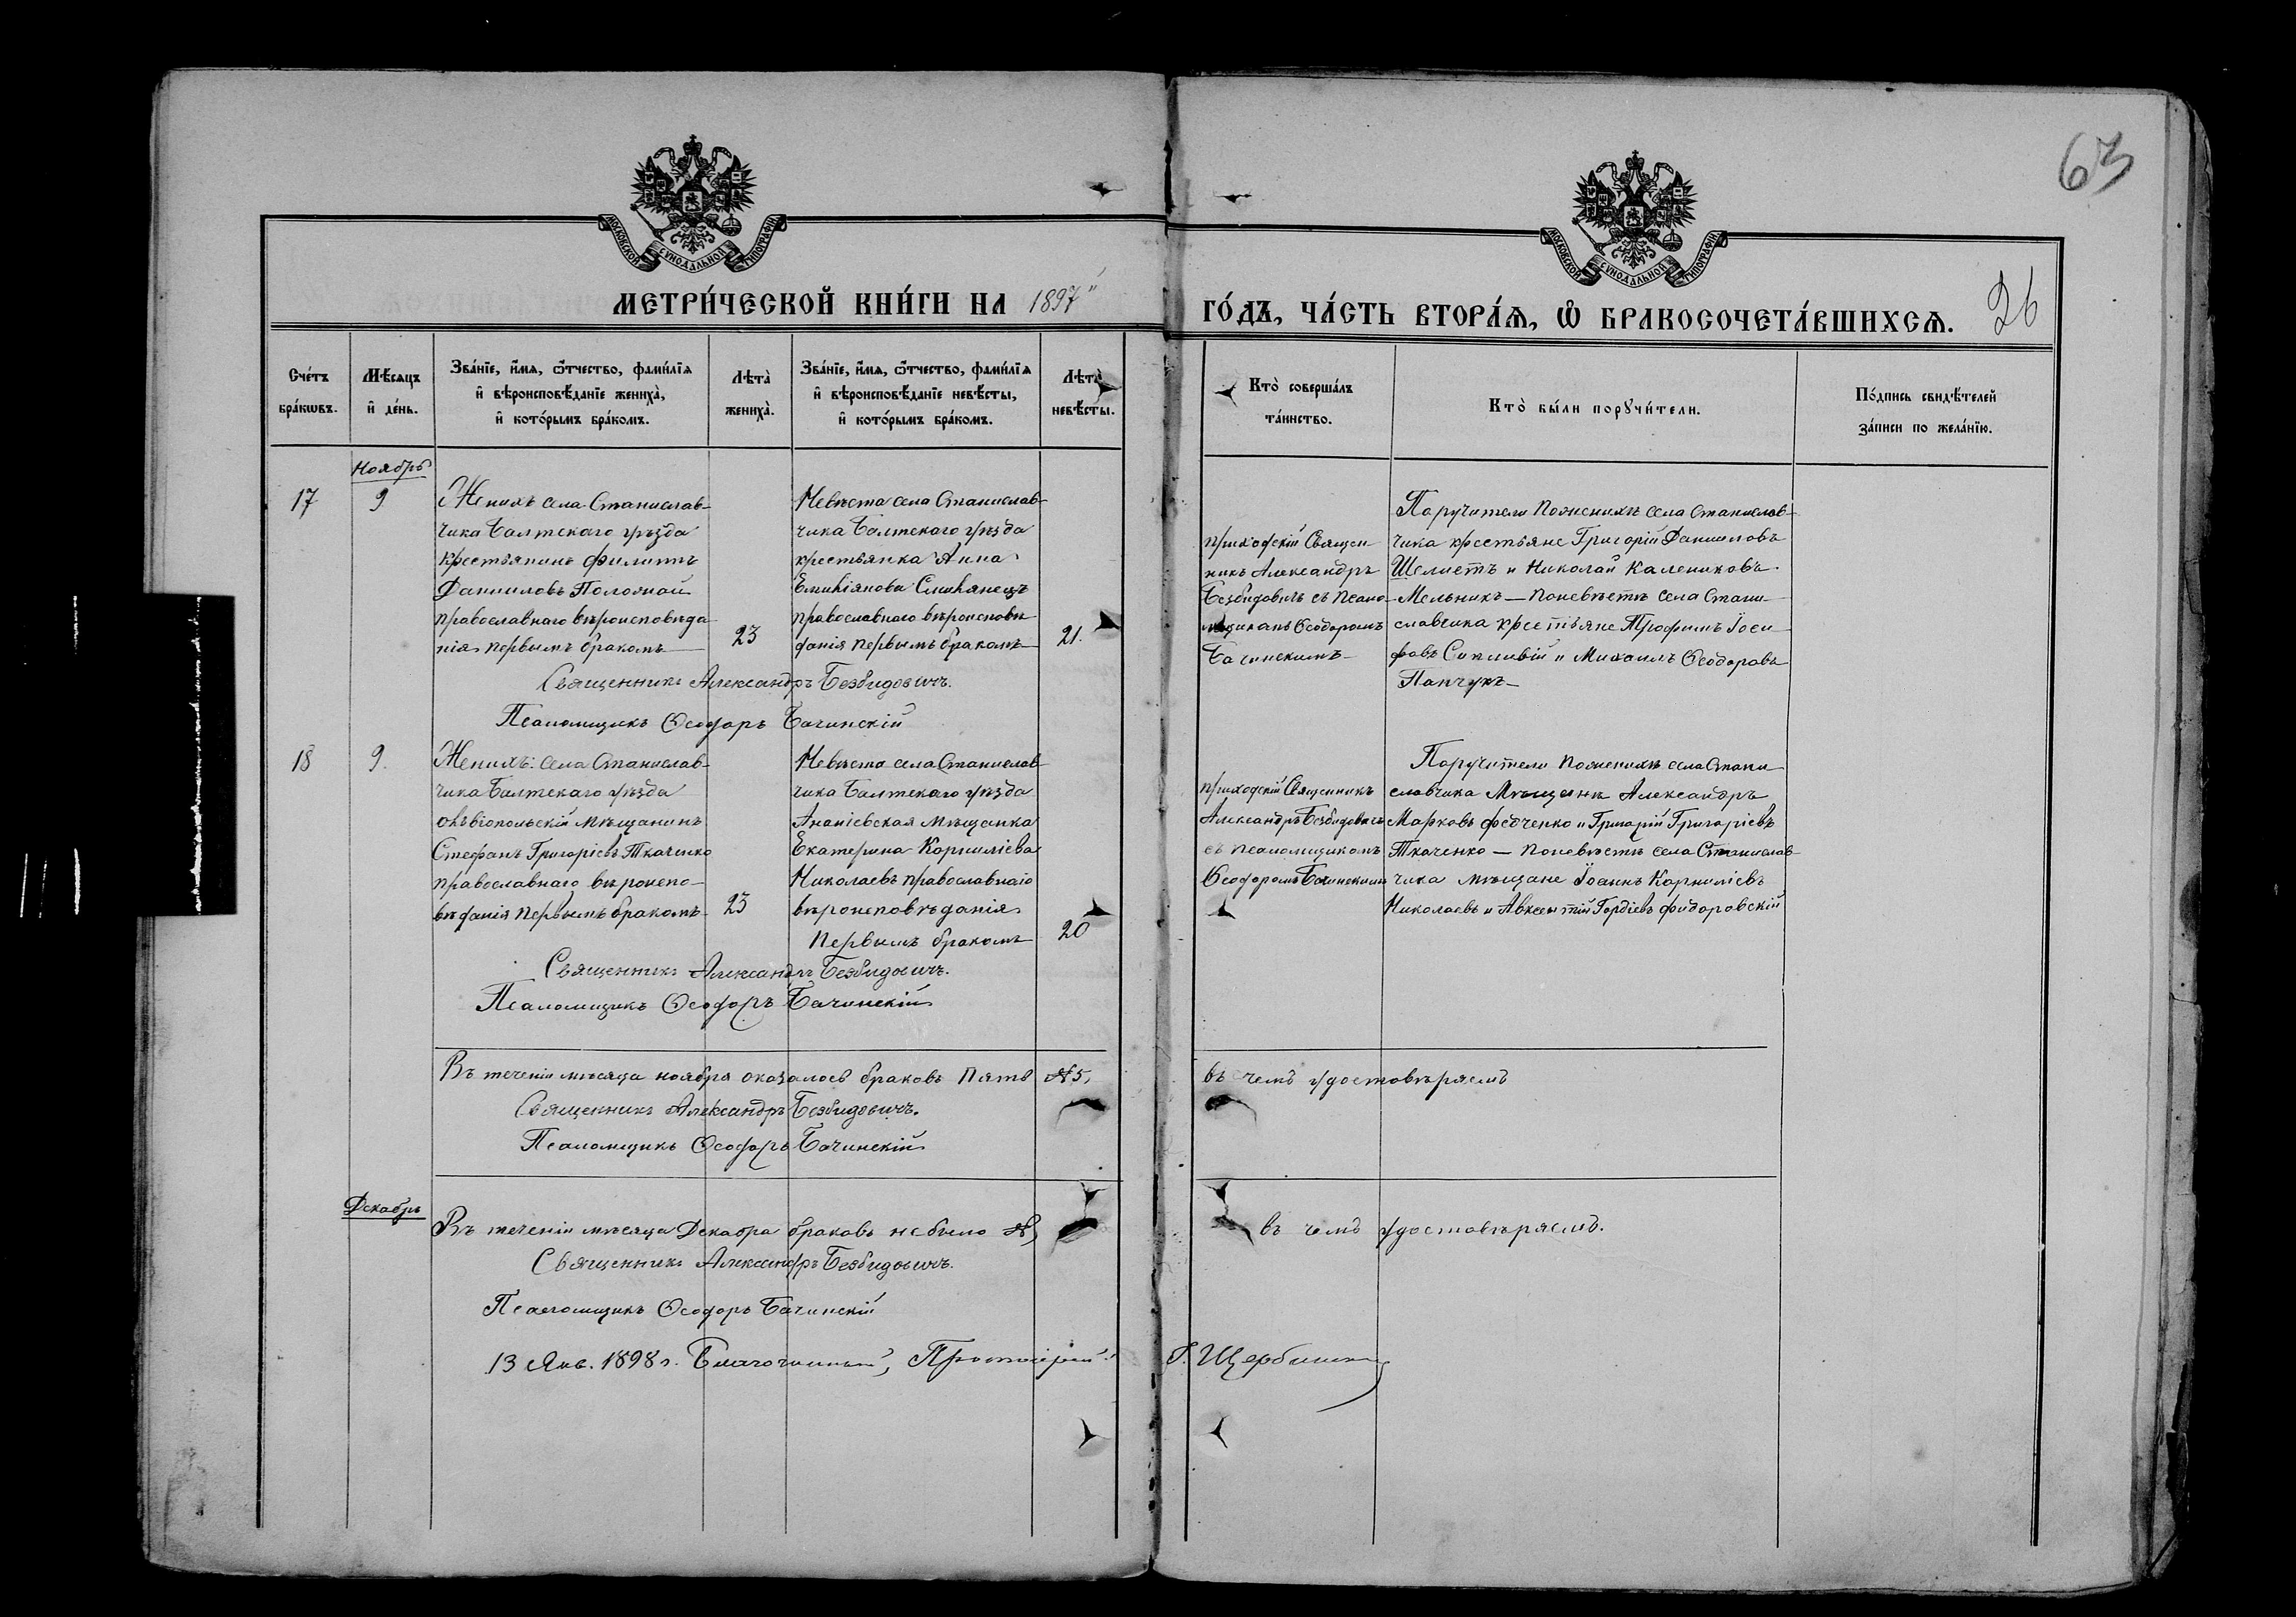 63
МОСКОВСКОЙ СУНОДАЛЬНОЙ ТИПОГРАФІИ
МОСКОВСКОЙ СУНОДАЛЬНОЙ ТИПОГРАФІИ
МЕТРИ́ЧЕСКОЙ КНИ́ГИ НА 1897
ГО́ДЪ, ЧА́СТЬ ВТОРА́Ѧ, Ѡ БРАКОСОЧЕТА́ВШИХСѦ. 26
Сче́тъ бра́кѡвъ.
Мѣ́сяцъ и де́нь.
Зва́нїе, и́мѧ, ѻ́тчество, фами́лїѧ
и вѣроисповѣ́данїе жениха̀,
и кото́рымъ бра́комъ.
Лѣта̀ жениха̀.
Зва́нїе, и́мѧ, ѻ́тчество, фами́лїѧ
и вѣроисповѣ́данїе невѣ́сты,
и кото́рымъ бра́комъ.
Лѣта̀ невѣ́сты.
Кто̀ соверша́лъ
та́инство.
Кто̀ бы́ли порꙋчи́тели.
По́дпись свидѣ́телей
за́писи по жела́нїю.
Ноябрь
17
9
Женихъ села Станислав-
чика Балтскаго уѣзда
крестьянинъ Филиппъ
Данииловъ Положай
православнаго вѣроисповѣда
нія первымъ бракомъ
23
Невѣста села Станислав-
чика Балтскаго уѣзда
крестьянка Анна
православнаго вѣроисповѣ
данія первымъ бракомъ
21.
приходскій Священ-
никъ Александръ
Безбидовичъ съ Псало-
мщикомъ Ѳеодоромъ
Бачинскимъ
Поручители По женихѣ села Станислав-
чика крестьяне Григорій Данииловъ
Шелистъ и Николай Калениковъ
Мельникъ — По невѣстѣ села Стани-
славчика крестьяне Трофимъ Іоси
фовъ Сипливій и Михаилъ Ѳеодоровъ
Панчукъ
Священникъ Александръ Безбидовичъ.
Псаломщикъ Ѳеодоръ Бачинскій
18
9.
Женихъ: села Станислав-
чика Балтскаго уѣзда
мѣщанинъ
Стефанъ Григоріевъ Ткаченко
православнаго вѣроиспо-
вѣданія первымъ бракомъ
23
Невѣста села Станислав
чика Балтскаго уѣзда
Ананіевская мѣщанка
Екатерина Корниліева
Николаевъ православнаго
вѣроисповѣданія
Первымъ бракомъ
20
приходскій Священникъ
Александръ Безбидовичъ
съ псаломщикомъ
Ѳеодоромъ Бачинскимъ
Поручители По женихѣ села Стани
славчика Мѣщане Александръ
Марковъ Федченко и Григорій Григоріевъ
Ткаченко — По невѣстѣ села Станислав-
чика мѣщане Іоаннъ Корниліевъ
Николаевъ и Авксентій Гордіевъ Фидоровскій
Священникъ Александръ Безбидовичъ.
Псаломщикъ Ѳеодоръ Бачинскій
Въ теченіи мѣсяца ноября оказалось браковъ Пять № 5,
въ чемъ удостовѣряемъ
Священникъ Александръ Безбидовичъ.
Псаломщикъ Ѳеодоръ Бачинскій
Декабрь
Въ теченіи мѣсяца Декабря браковъ не было
въ чемъ удостовѣряемъ.
Священникъ Александръ Безбидовичъ.
Псаломщикъ Ѳеодоръ Бачинскій
13 Янв. 1898 г. Благочинный, Протоіерей